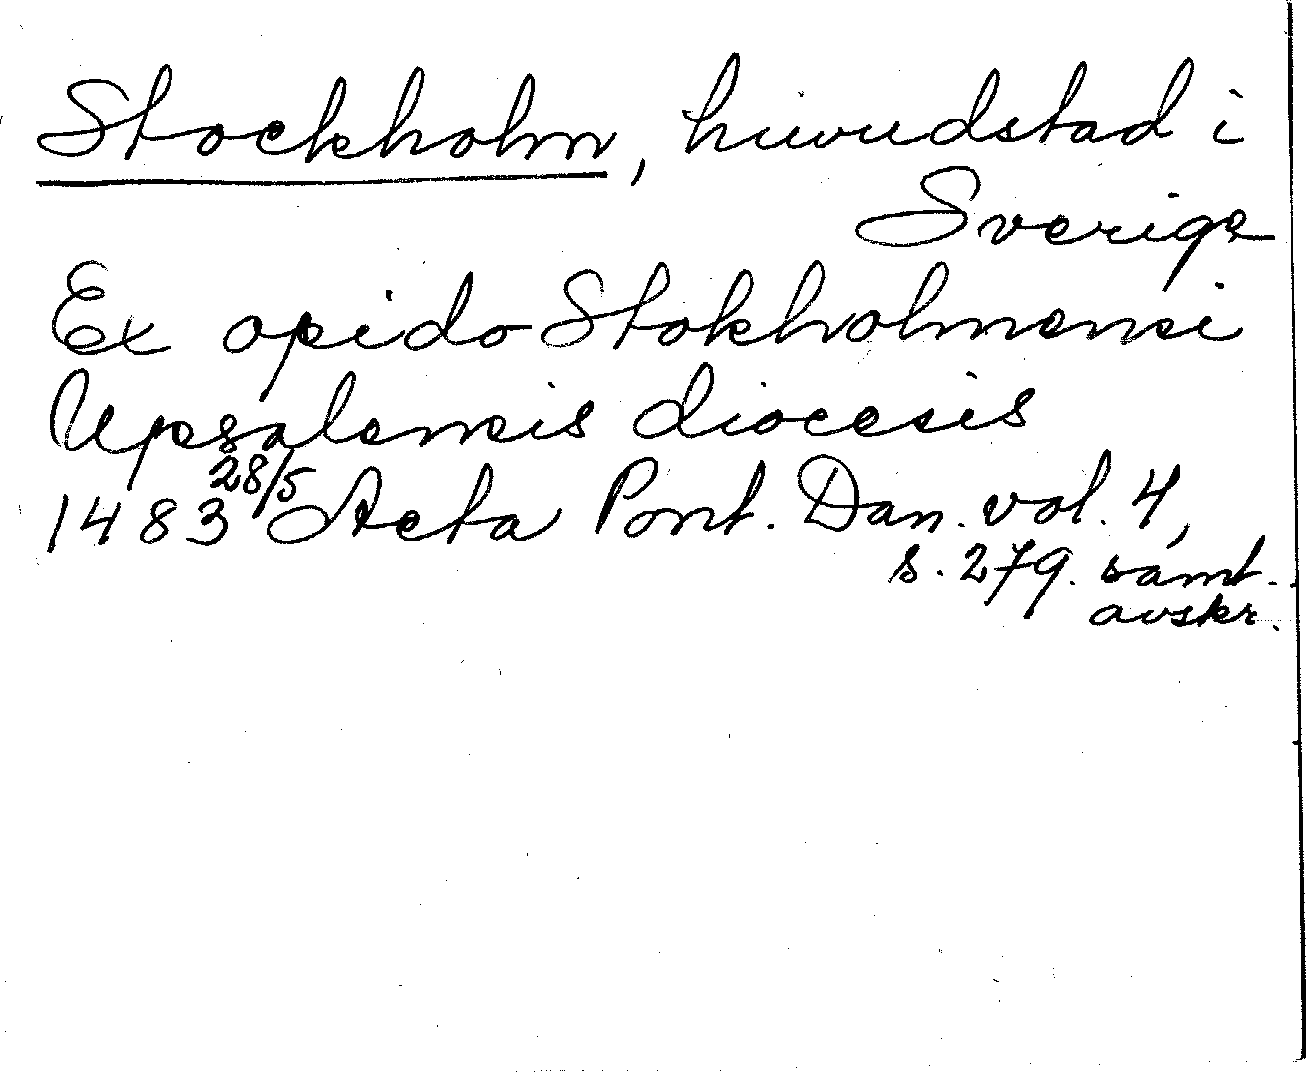 Stockholm, huvudstad i
Sverige
Ex opido Stokholmensi
Upsalensis diocesis
1483 28/5 Acta Pont. Dan. vol. 4,
s. 279. samt.
avskr.